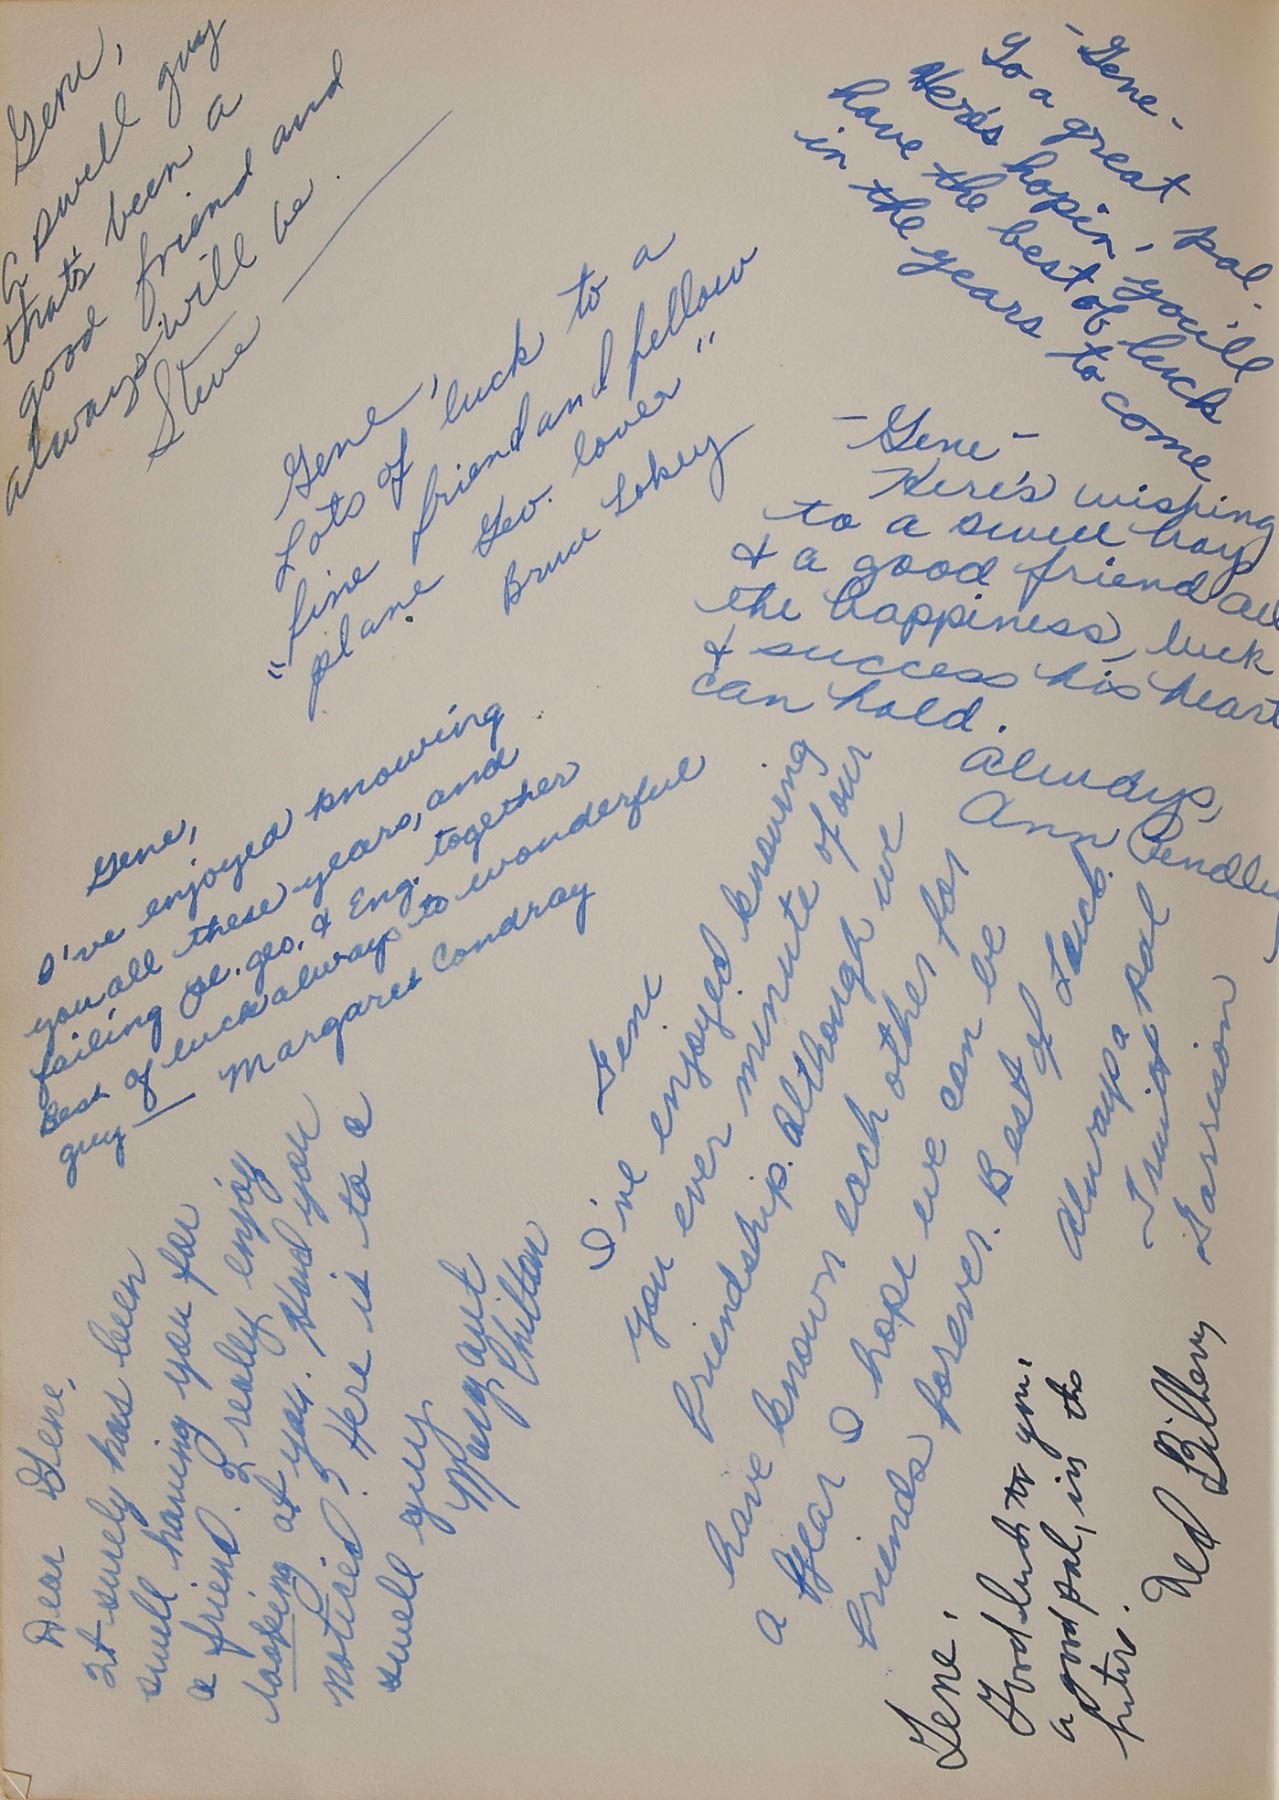 Gene,
a swell guy
that's been a
good friend and
always will be.
Steve
-Gene-
To a great pal.
Here's hopin' you'll
have the best of luck
in the years to come
Gene,
Lots of luck to a
"fine friend and fellow
plane Geo. lover"
Bruce Lokey
-Gene-
Here's wishing
to a swell boy
& a good friend all
the happiness, luck
& success his heart
can hold.
Always,
Ann Pendley
Gene,
I've enjoyed knowing
you all these years, and
failing geo. & Eng. together
Best of luck always to wonderful
guy
Margaret Condray
Gene
I've enjoyed knowing
you ever minute of our
friendship. Although we
have known each other for
a year I hope we can be
friends forever. Best of Luck.
Always a
pal
Garrison
Dear Gene,
It surely has been
swell having you for
a friend. I really enjoy
looking at you. Had you
noticed? Here is to a
swell guy
Margaret
Chilton
Gene,
Good luck to you.
a good pal, in the
futur.
Ned Bilhevy